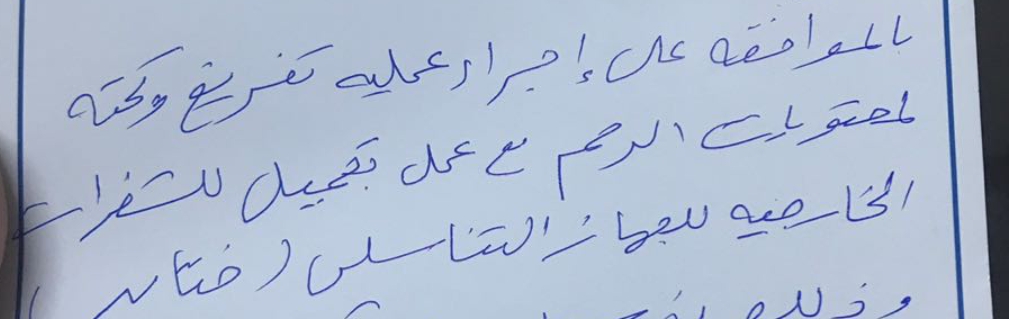 بالموافقه على إجراء عمليه تفريغ وكحته
لمحتويات الرحم مع عمل تجميل للشفرات
الخارجيه للجهاز التناسلى (ختان
وذلك